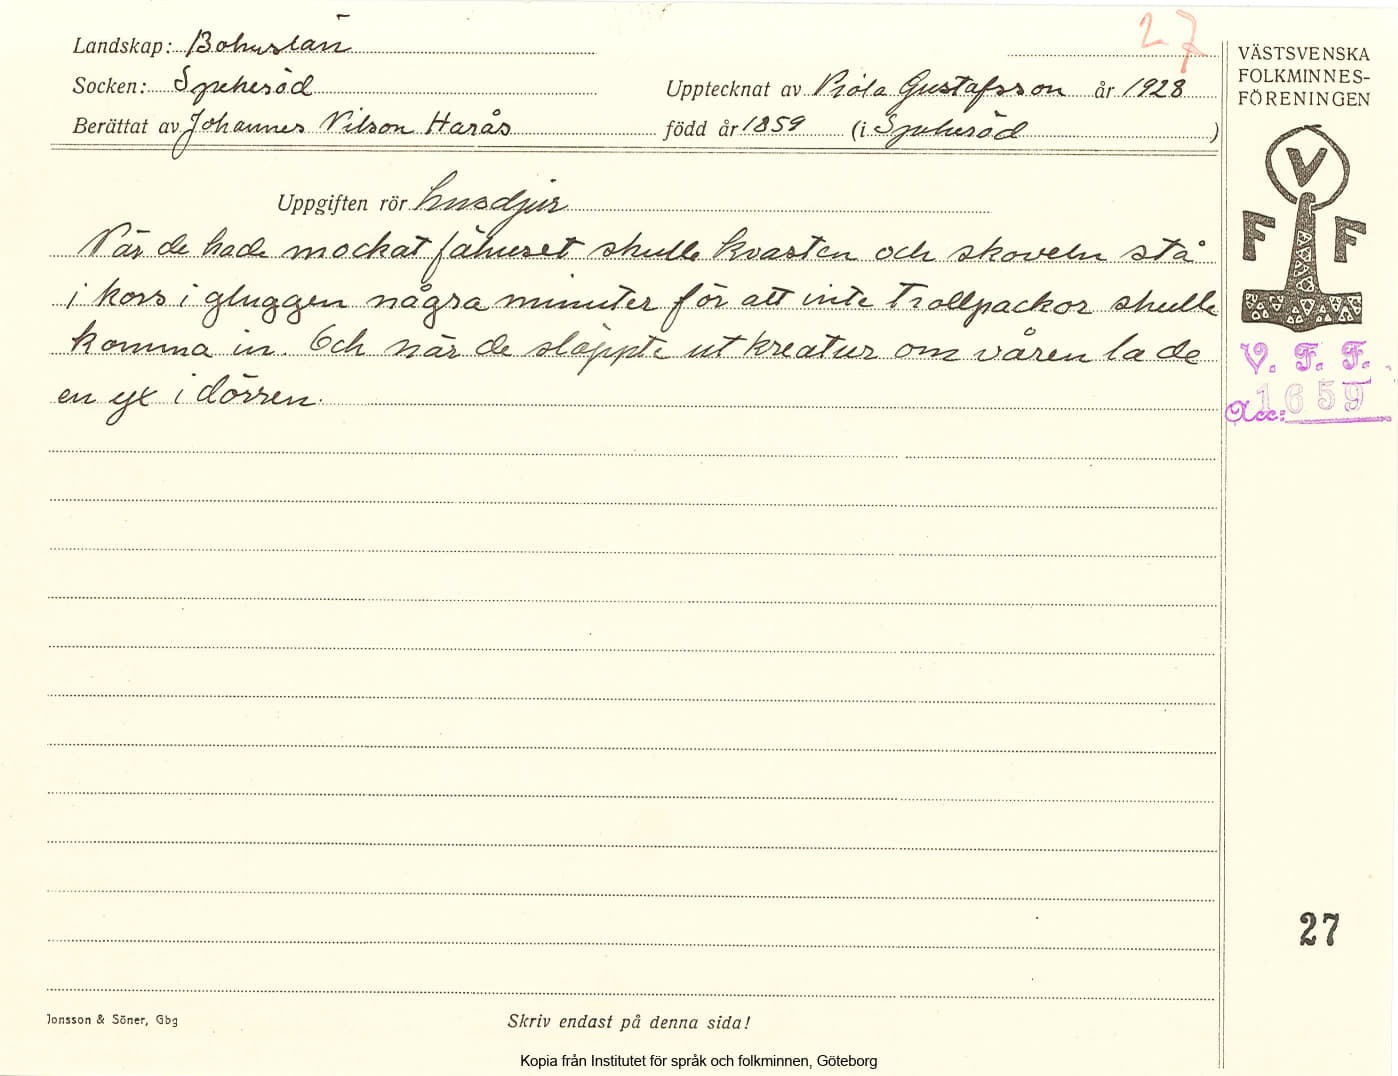 27
Landskap: Bohuslän
Socken: Spekeröd
Upptecknat av Viola Gustafsson år 1928
Berättat av Johannes Nilson Harås född år 1859 (i Spekeröd)
VÄSTSVENSKA
FOLKMINNES-
FÖRENINGEN
V
F F
V. F. F.
Acc: 1659
Uppgiften rör husdjur
När de hade mockat fähuset skulle kvasten och skoveln stå
i kors i gluggen några minuter för att inte Trollpackor skulle
komma in. Och när de släppte ut kreatur om våren la de
en yx i dörren.
27
Jonsson & Söner, Gbg
Skriv endast på denna sida!
Kopia från Institutet för språk och folkminnen, Göteborg